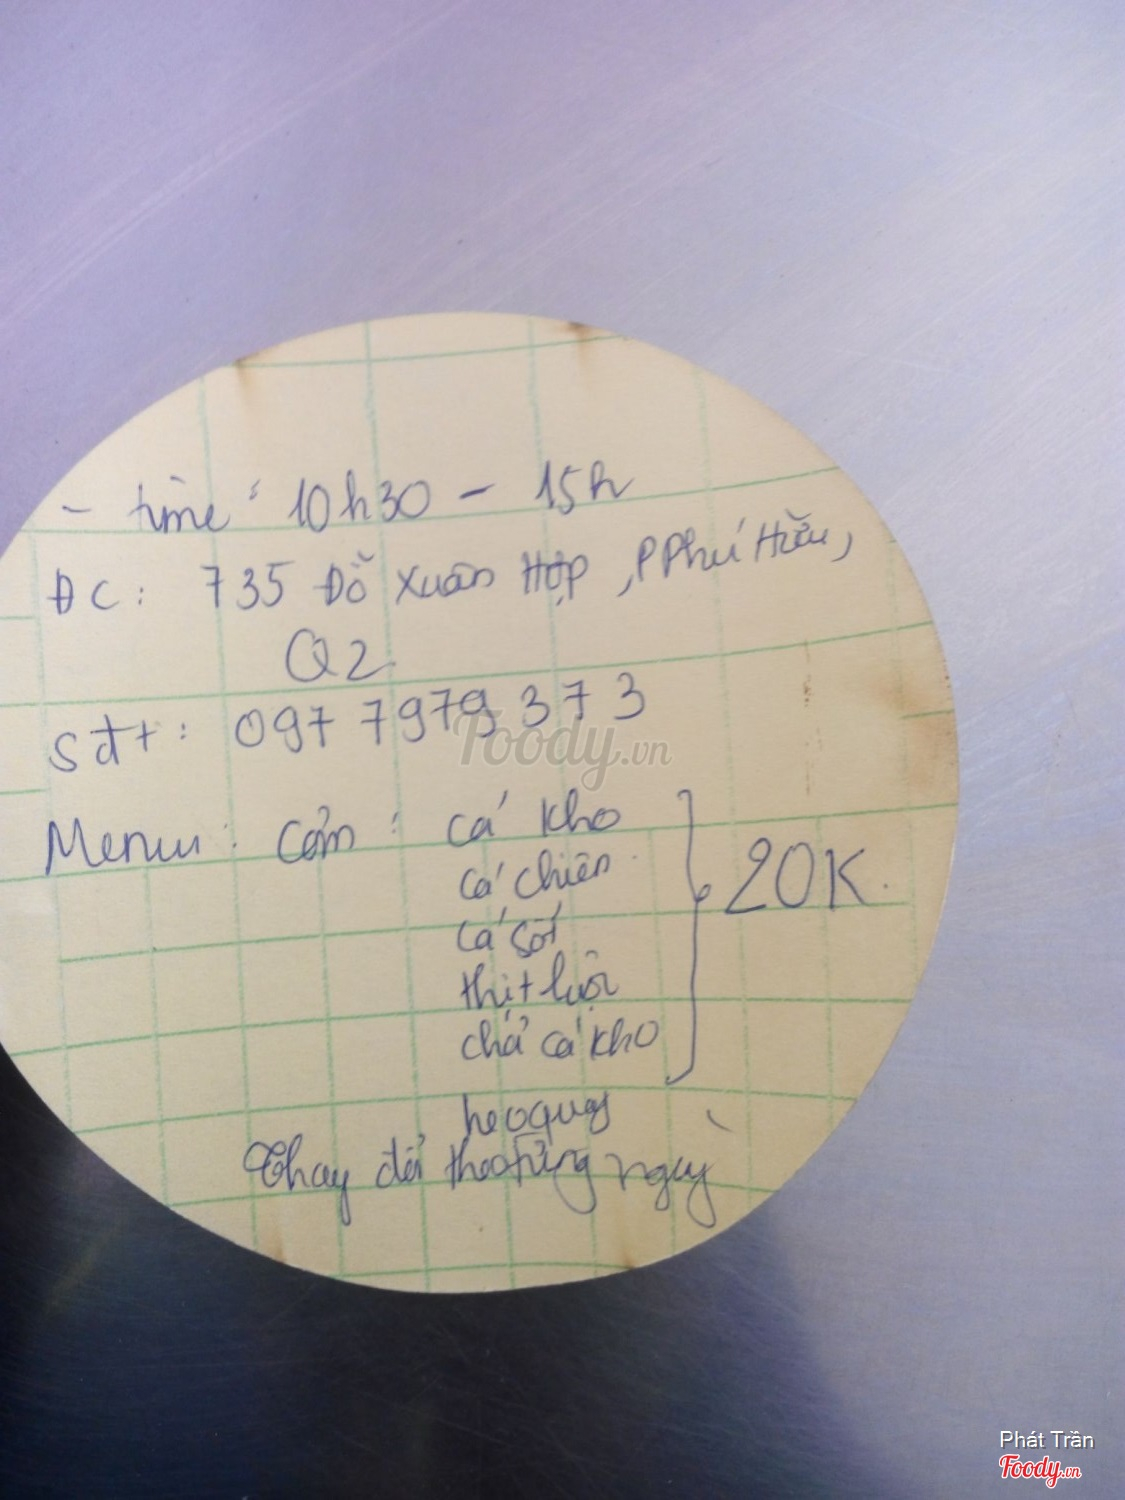 - time: 10h30 - 15h
ĐC: 735 Đỗ Xuân Hợp, P Phú Hữu,
Q2
sđt: 097 7979 373
Foody.vn
Menu: Cơm: cá kho
cá chiên
cá sốt
thịt luộc
chả cá kho
20K.
heo quay
Thay đổi theo từng ngày
Phát Trần
Foody.vn